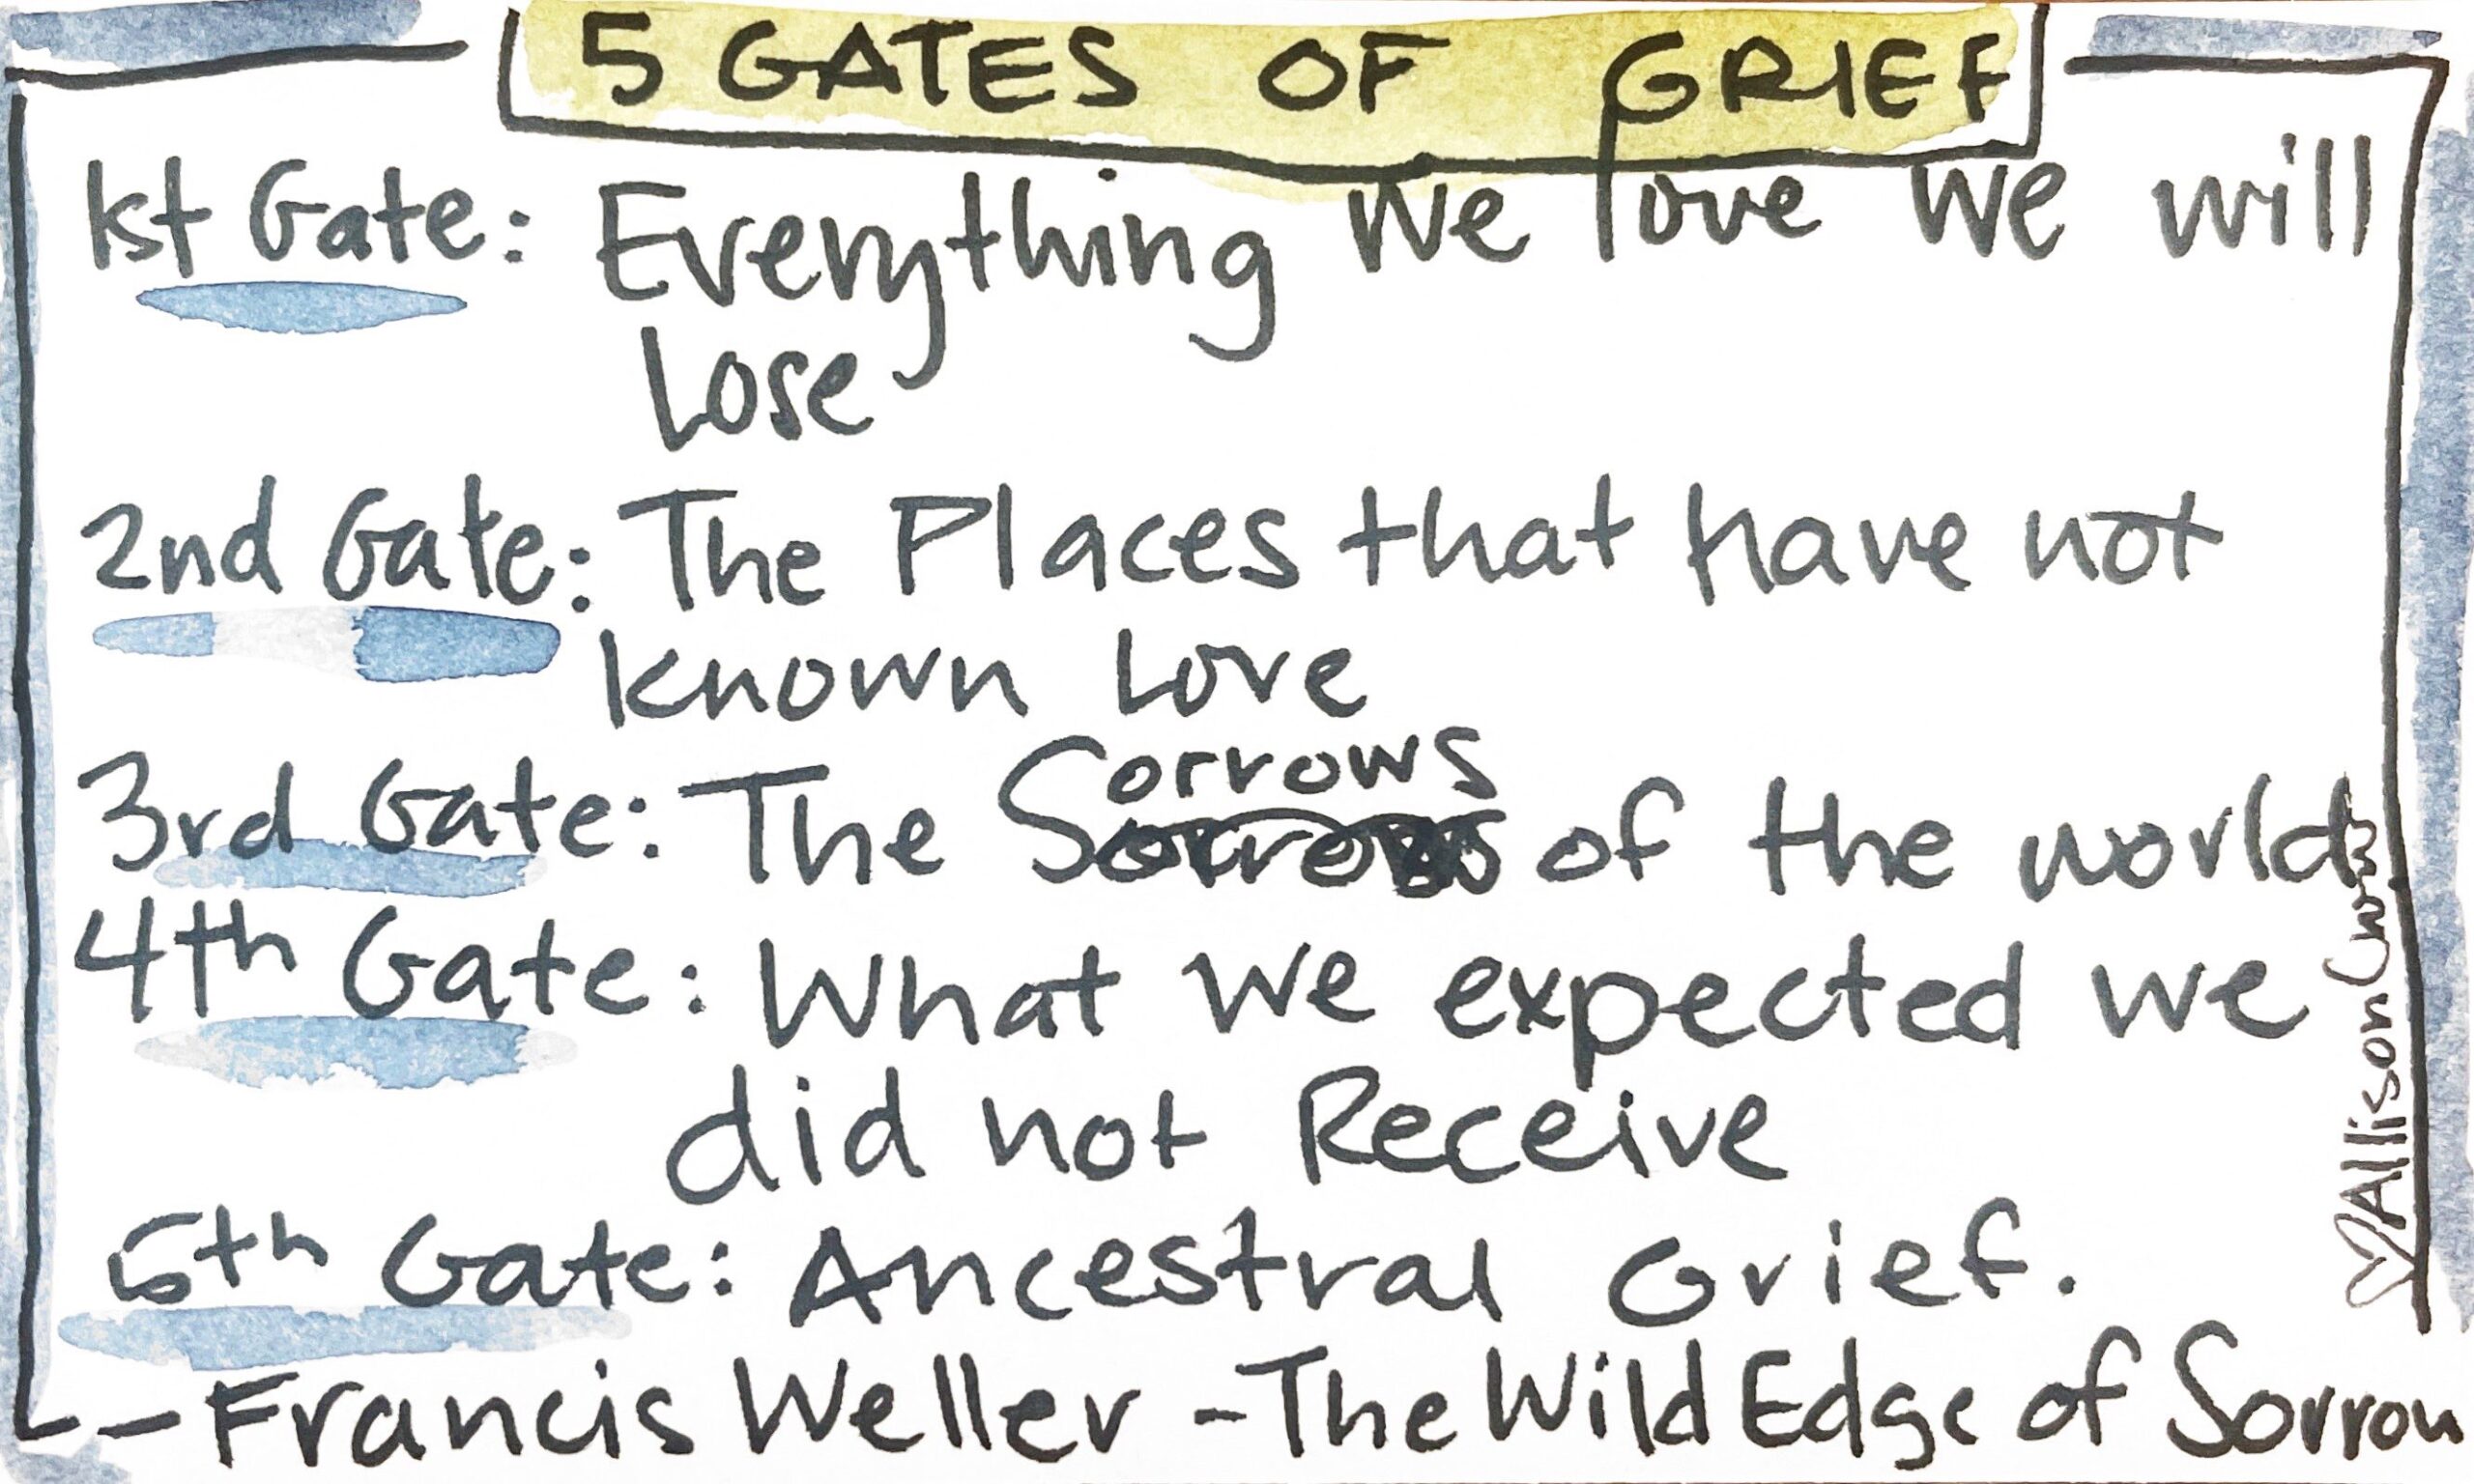 5 GATES OF GRIEF
1st Gate: Everything we love we will
Lose
2nd Gate: The Places that have not
known Love
3rd Gate: The Sorrows of the world
4th Gate: What we expected we
did not Receive
5th Gate: Ancestral Grief.
- Francis Weller - The Wild Edge of Sorrow
Allison